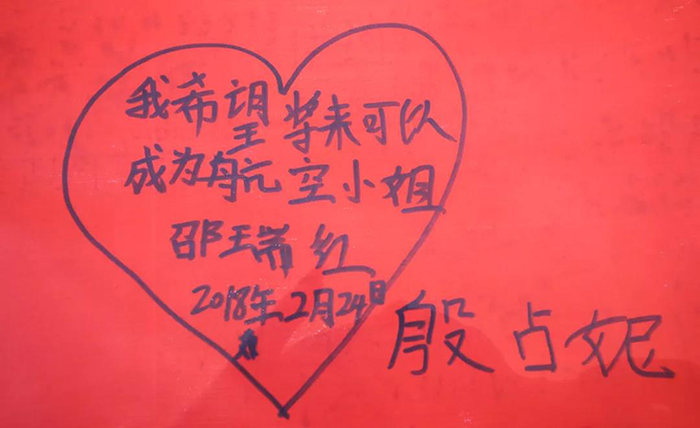 我希望将来可以
成为航空小姐
邵瑞红
2018年2月24日
殷占妮